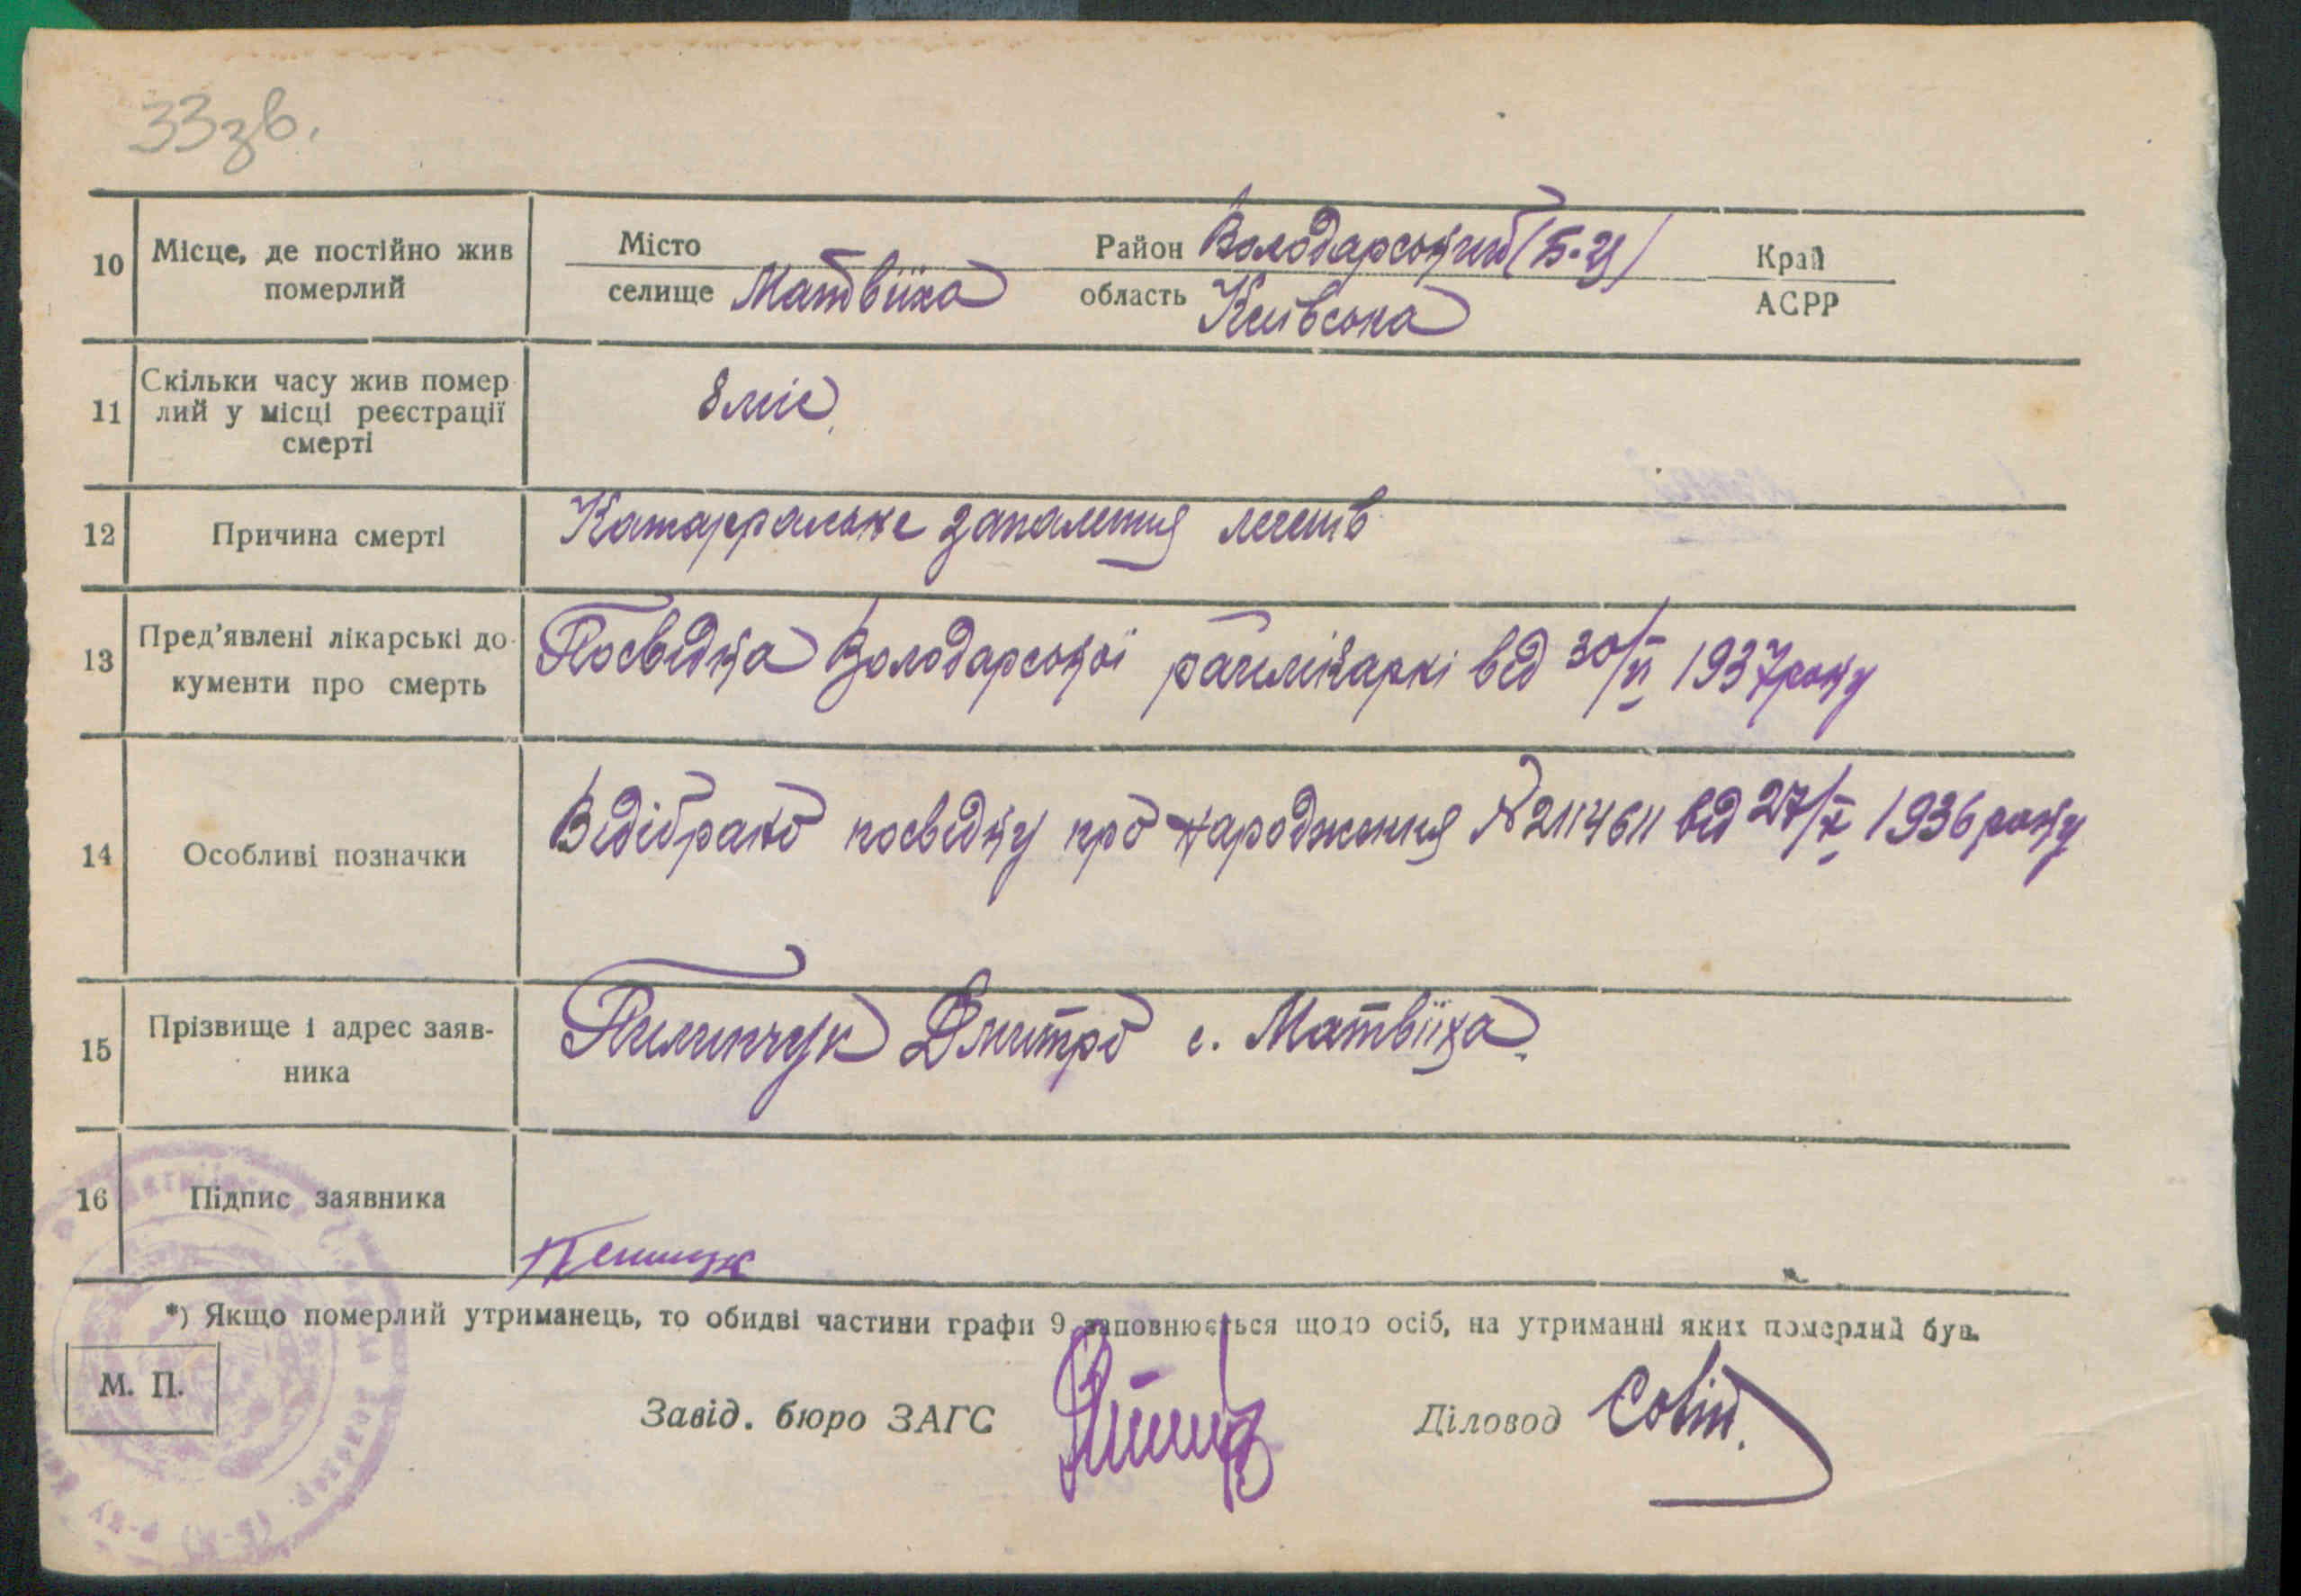 33зв.
10 Місце, де постійно жив померлий
Місто
селище Матвіїха
Район Володарський (Б-Ц)
область Київська
Край
АСРР
11 Скільки часу жив помер
лий у місці реєстрації
смерті
8 міс.
12 Причина смерті
Катарральне запалення легенів
13 Пред'явлені лікарські до-
кументи про смерть
Посвідка Володарської райлікаркі від 30/VI 1937 року
14 Особливі позначки
Відібрано посвідку про народження № 2114611 від 27/X 1936 року
15 Прізвище і адрес заяв-
ника
Пилипчук Дмитро с. Матвіїха.
16 Підпис заявника
*) Якщо померлий утриманець, то обидві частини графи 9 заповнюється щодо осіб, на утриманні яких померлий був.
М. П.
Завід. бюро ЗАГС
Діловод